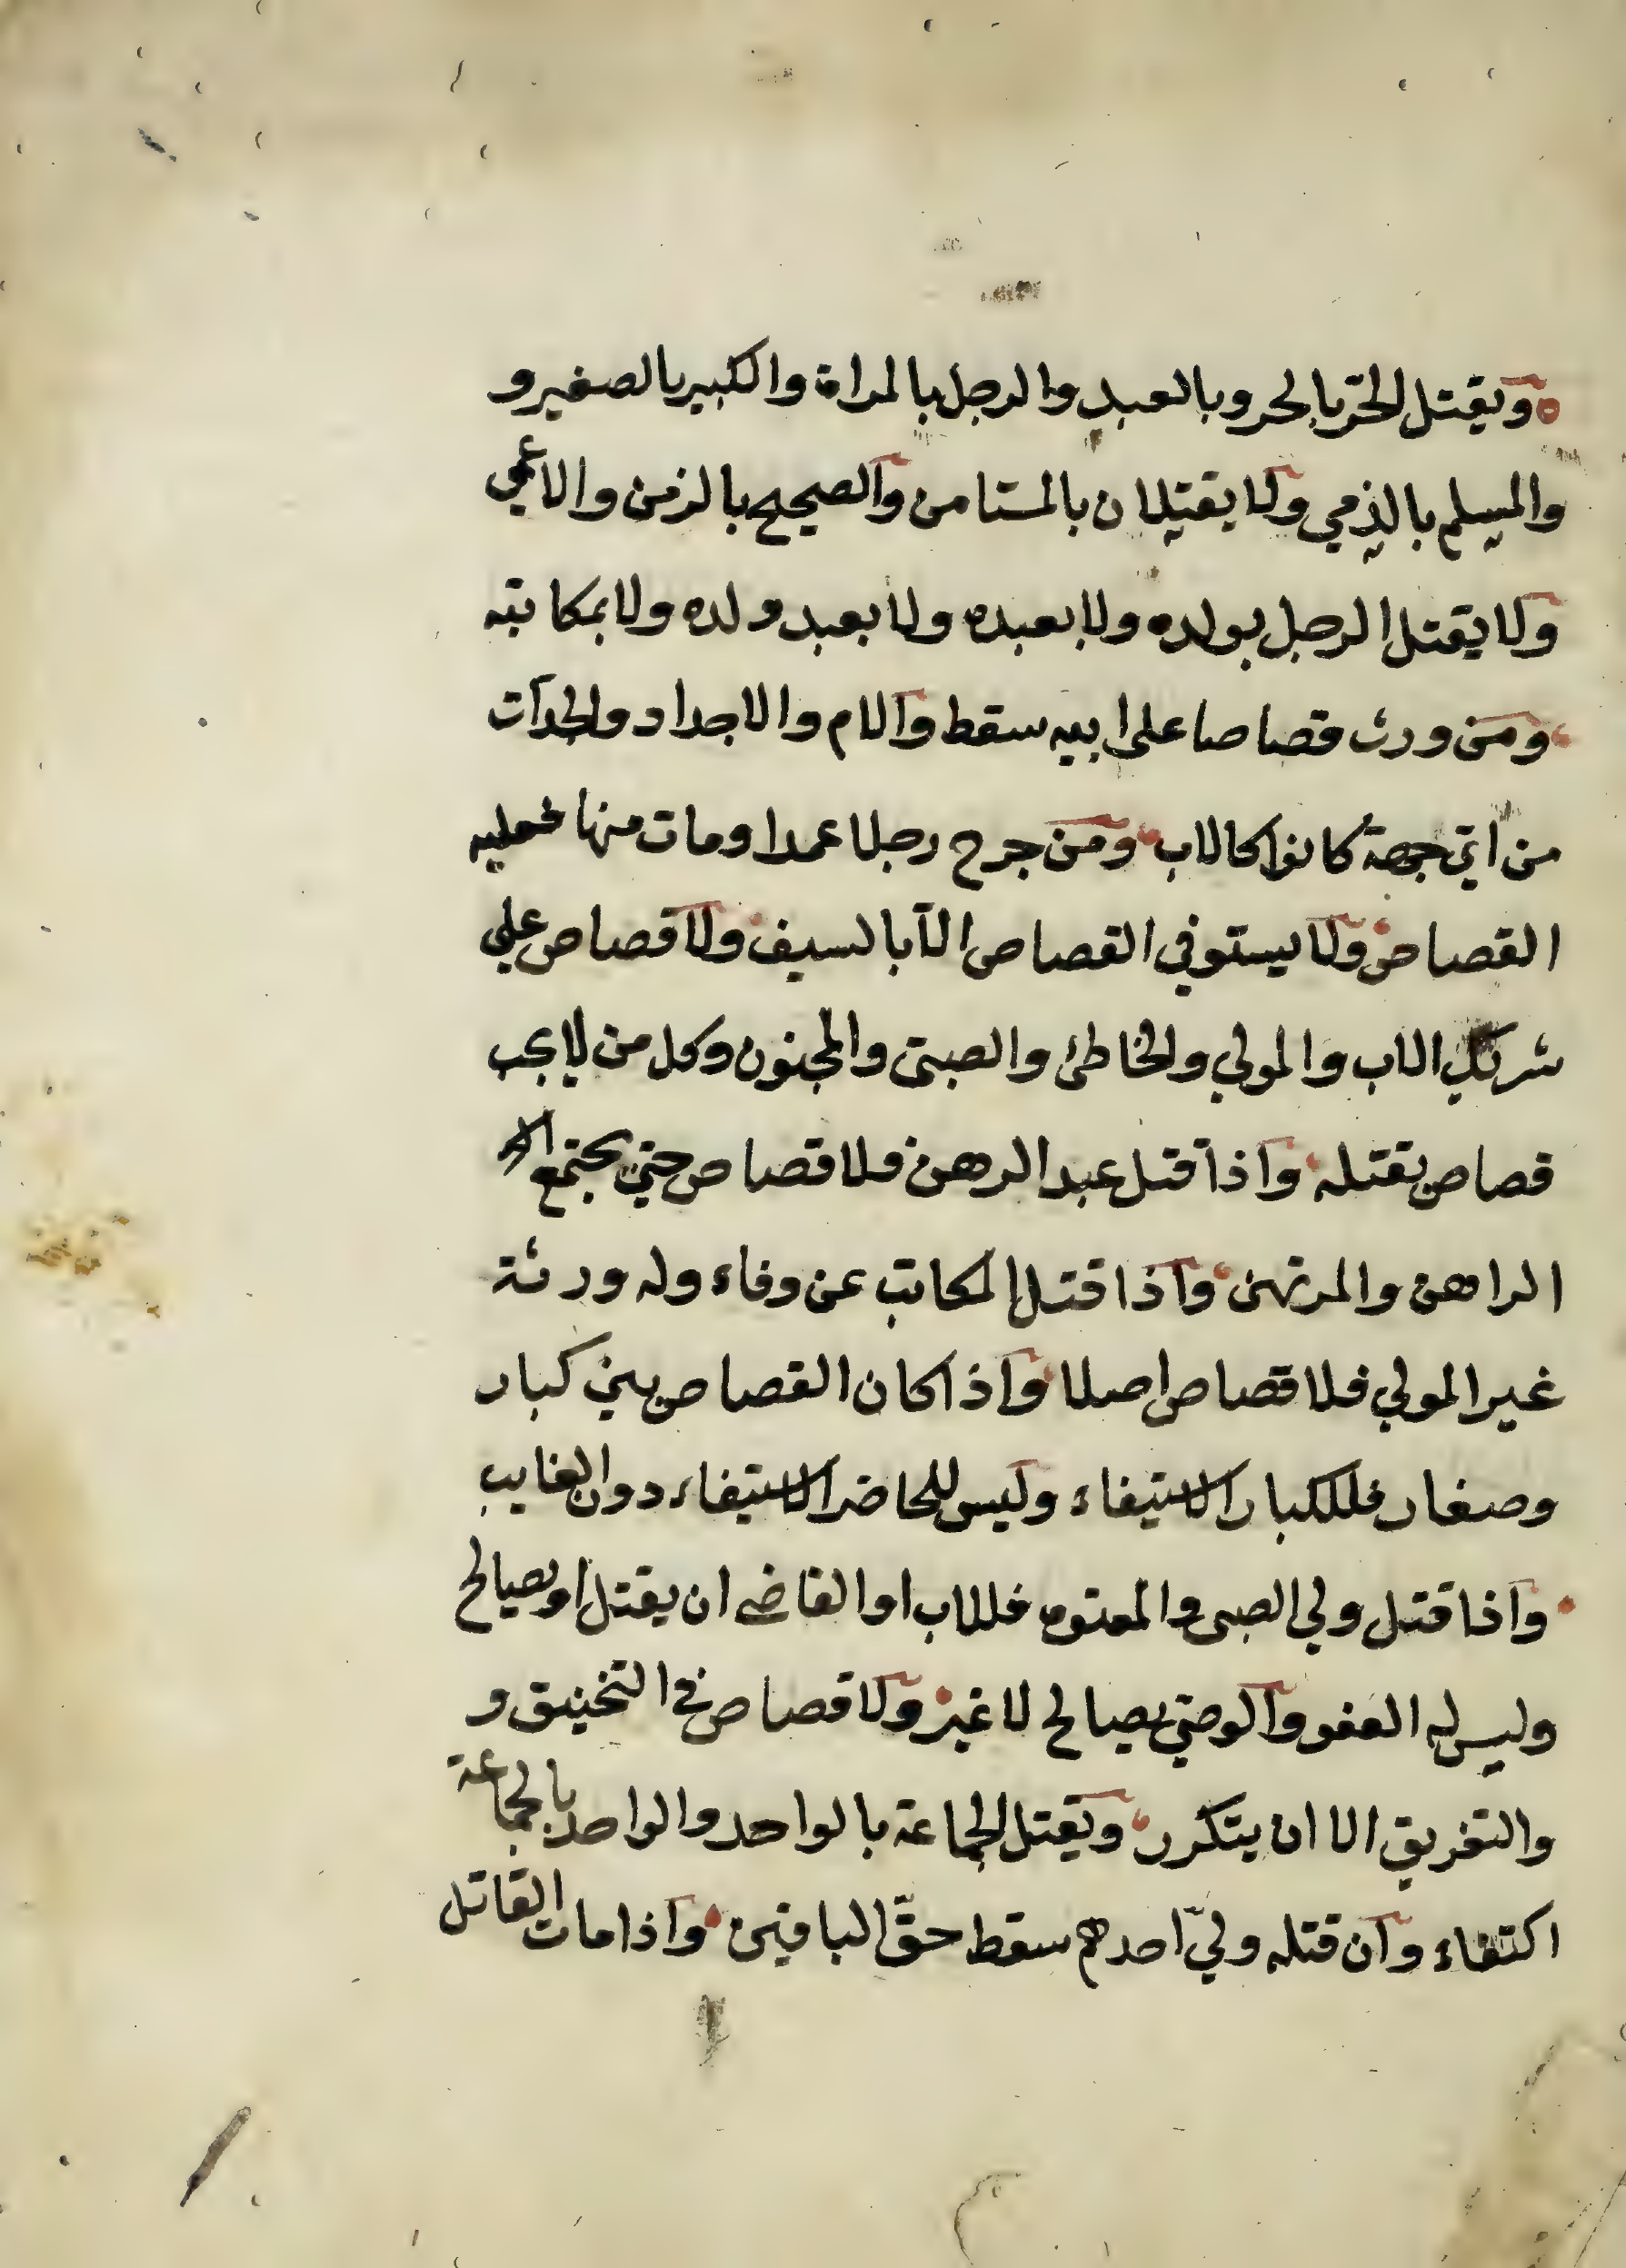 ويقتل الحرّ بالحر وبالعبد والرجل بالمراة والكبير بالصغير و
والمسلم بالذمي ولا يقتلان بالمستامن والصحيح بالزمن والاعمي
ولا يقتل الرجل بولده ولا بعبده ولا بعبد ولده ولا بمكاتبه
ومن ورث قصاصا على ابيه سقط والام والاجداد والجدات
من ايّ جهة كانوا كالاب ومن جرح رجلا عمدا ومات منها فعليه
القصاص ولا يستوفي القصاص الا بالسيف ولا قصاص علي
شريك الاب والمولي والخاطئ والصبيّ والمجنون وكل من لا يجب
قصاص بقتله واذا قتل عبد الرهن فلا قصاص حتي يجتمع
الراهن والمرتهن واذا قتل المكاتب عن وفاء وله ورثة
غير المولي فلا قصاص اصلا واذا كان القصاص بين كبار
وصغار فللكبار الاستيفاء وليس للحاضر الاستيفاء دون الغايب
واذا قتل ولي الصبى والمعتوه فللاب او القاضي ان يقتل او يصالح
وليس له العفو والوصيّ يصالح لا غير ولا قصاص في التخنيق و
والتغريق الا ان يتكرر ويقتل الجماعة بالواحد والواحد بالجماعة
اكتفاء وان قتله وليّ احدهم سقط حقّ الباقين واذا مات القاتل